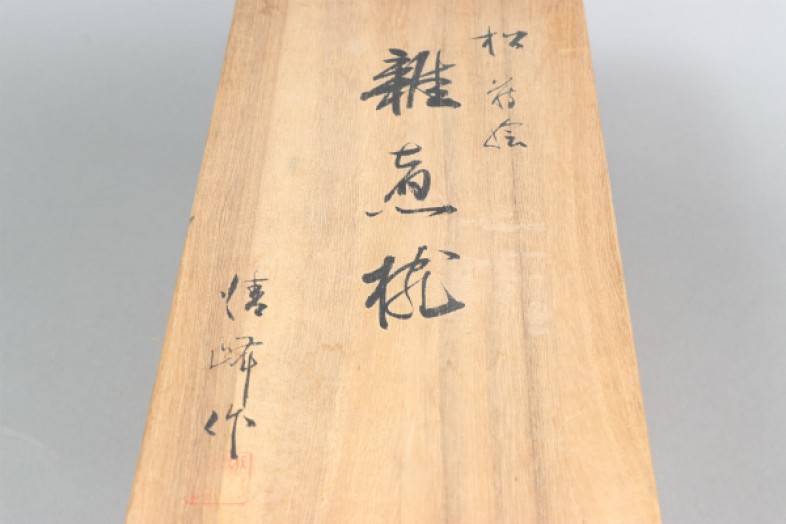 松蒔絵
雑煮椀
清峰作